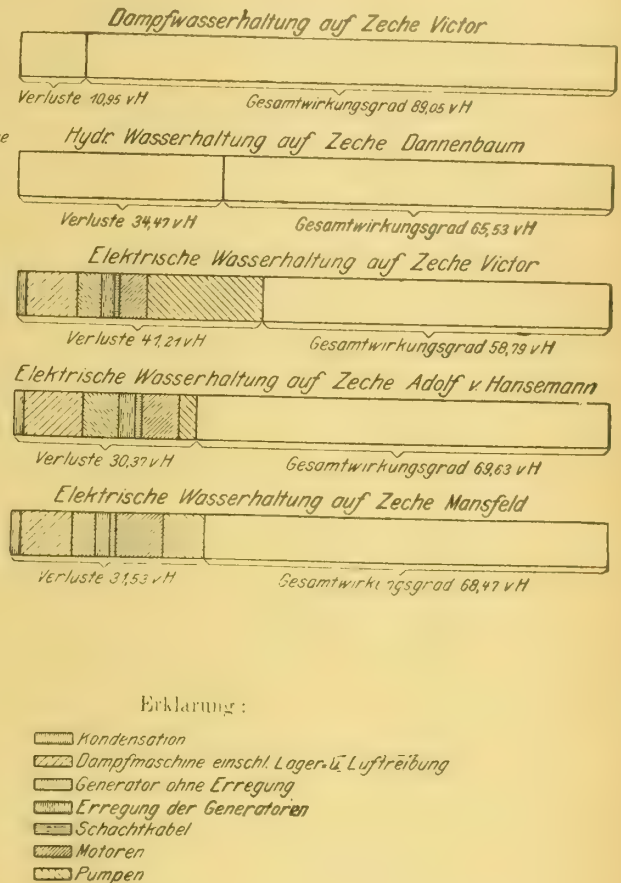 Dampfwasserhaltung auf Zeche Victor
Verluste 10,95 vH Gesamtwirkungsgrad 89,05 vH
Hydr. Wasserhaltung auf Zeche Dannenbaum
Verluste 34,47 vH Gesamtwirkungsgrad 65,53 vH
Elektrische Wasserhaltung auf Zeche Victor
Verluste 41,21 vH Gesamtwirkungsgrad 58,79 vH
Elektrische Wasserhaltung auf Zeche Adolf v. Hansemann
Verluste 30,37 vH Gesamtwirkungsgrad 69,63 vH
Elektrische Wasserhaltung auf Zeche Mansfeld
Verluste 31,53 vH Gesamtwirkungsgrad 68,47 vH
Erklarung:
Kondensation
Dampfmaschine einschl. Lager- u. Luftreibung
Generator ohne Erregung
Erregung der Generatoren
Schachtkabel
Motoren
Pumpen